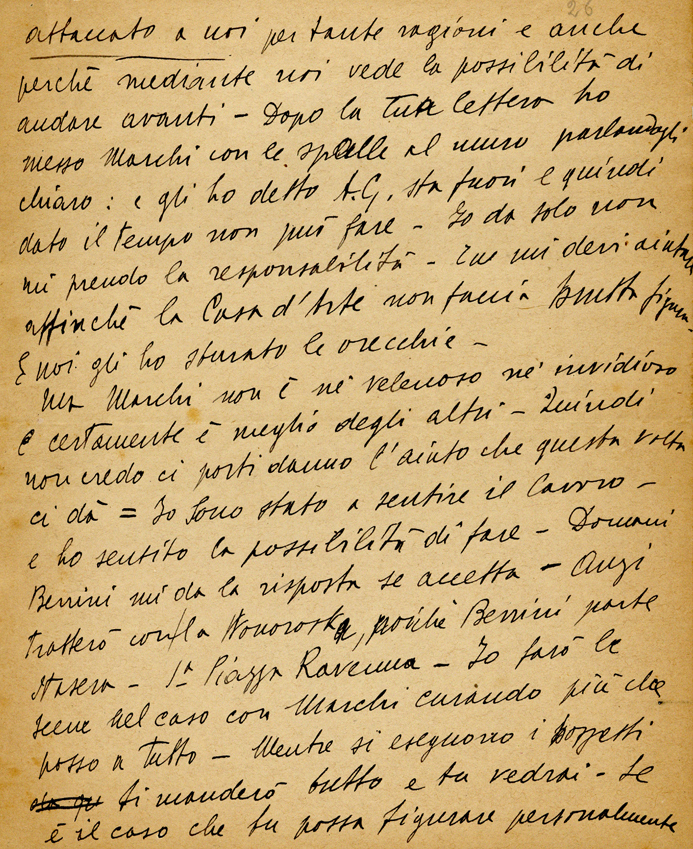 26
attaccato a noi per tante ragioni e anche
perchè mediante noi vede la possibilità di
andare avanti – Dopo la tua lettera ho
messo Marchi con le spalle al muro parlandogli
chiaro : e gli ho detto A.G. sta fuori e quindi
dato il tempo non può fare – Io da solo non
mi prendo la responsabilità – Tu mi devi aiutare
affinchè la Casa d'Arte non faccia brutta figura –
E noi gli ho sturato le orecchie –
Ma Marchi non è nè velenoso nè invidioso
e certamente è meglio degli altri – Quindi
non credo ci porti danno l'aiuto che questa volta
ci dà = Io sono stato a sentire il lavoro –
e ho sentito la possibilità di fare – Domani
Berrini mi da la risposta se accetta – Anzi
tratterò con la poichè Berrini parte
stasera – 1ª Piazza Ravenna – Io farò le
scene nel caso con Marchi curando più che
posso a tutto – Mentre si eseguono i bozzetti
ti manderò tutto e tu vedrai – Se
è il caso che tu possa figurare personalmente